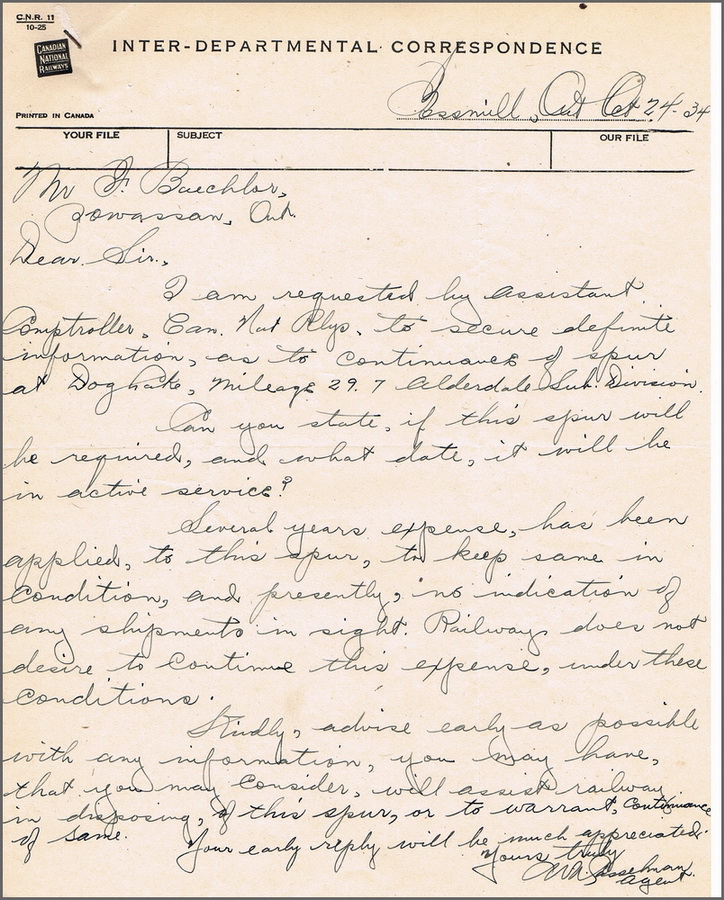 C.N.R. 11
10-25
CANADIAN
NATIONAL
RAILWAYS
INTER-DEPARTMENTAL CORRESPONDENCE
Ont Oct 24-34
PRINTED IN CANADA
YOUR FILE SUBJECT OUR FILE
Mr F. Baechlor,
Powassan, Ont.
Dear Sir.,
I am requested by assistant
Comptroller, Can. Nat Rlys. to secure definite
information, as to continuance of spur
at Dog Lake, Mileage 29.7 Alderdale Sub. Division.
Can you state, if this spur will
be required, and what date, it will be
in active service?
Several years expense, has been
applied, to this spur, to keep same in
condition, and presently, no indication of
any shipments in sight. Railways does not
desire to continue this expense, under these
conditions.
Kindly, advise early as possible
with any information, you may have,
that you may consider, will assist railway
in disposing, of this spur, or to warrant, continuance
of same.
Your early reply will be much appreciated.
Yours truly
Agent.